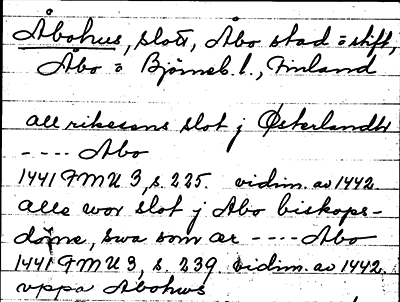 Åbohus, slott, Åbo stad o stift,
Åbo o Björneb. l., Finland
all rikesens slot j Østerlandh
---- Åbo
1441 FMU 3, s. 225. vidim. av 1442.
alle wor slot j Åbo biskops-
døme, swa som ær ---- Åbo
1441 FMU 3, s. 239. vidim. av 1442.
vppa Abohws